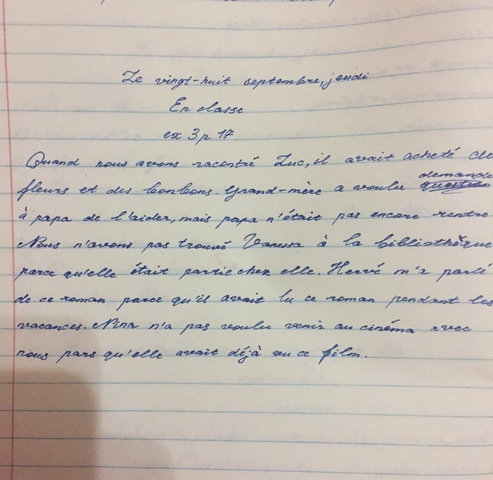 Le vingt-huit septembre, jeudi
En classe
ex 3, p 17
Quand nous avons racontré Luc, il avait acheté de
fleurs et des bonbons. Grand-mère a voulu demande
à papa de l'aider, mais papa n'était pas encore rentre
Nous n'avons pas trouvé Vanessa à la bibliothèque
parce qu'elle était partie chez elle. Hervé m'a parlé
de ce roman parce qu'il avait lu ce roman pendant les
vacances. Nina n'a pas voulu venir au cinéma avec
nous pars qu'elle avait déjà vu ce film.